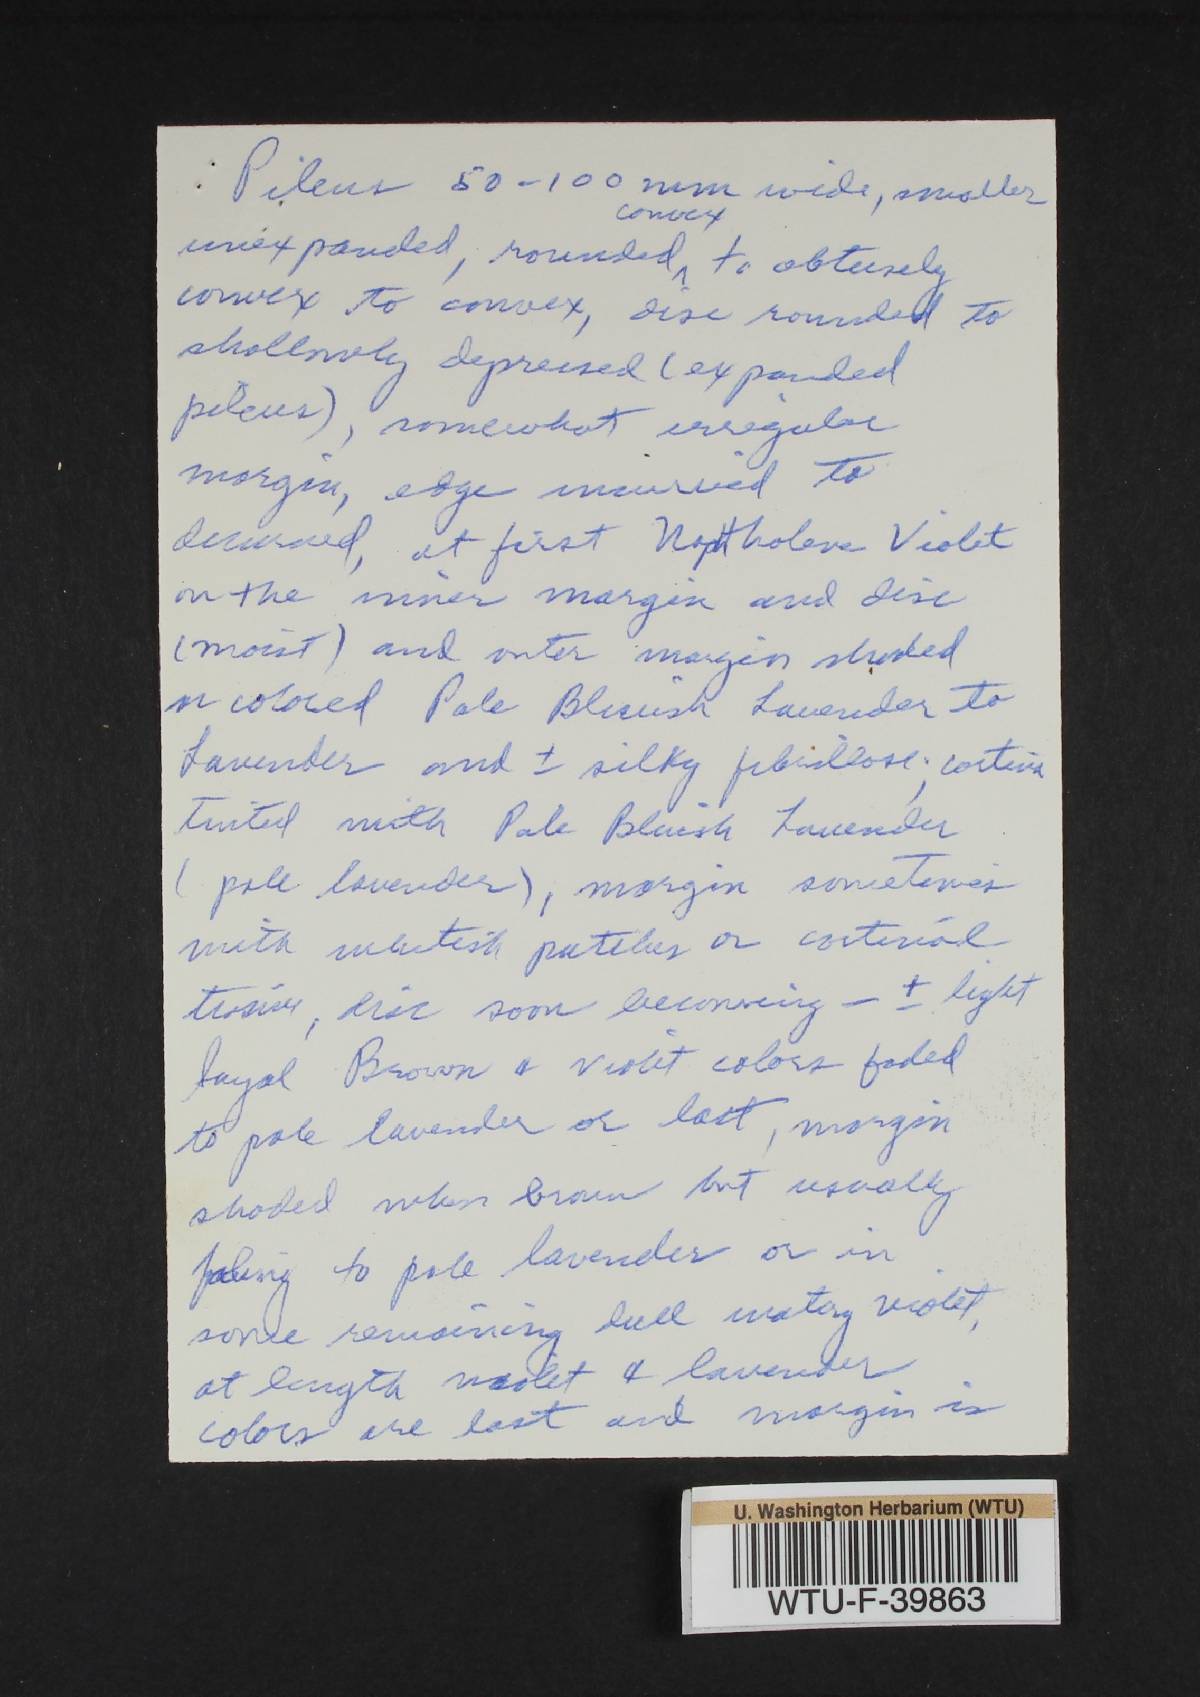 Pileus 50-100 mm wide, smaller
convex
unexpanded, rounded ^ to obtusely
convex to convex, disc rounded to
shallowly depressed (expanded
pileus), somewhat irregular
margin, edge incurved to
decurved, at first Violet
on the inner margin and disc
(moist) and outer margin shaded
or colored Pale Bluish Lavender to
Lavender and ± silky fibrillose; cortina
tinted with Pale Bluish Lavender
(pale lavender), margin sometimes
with whitish patches or cortinal
tissue, disc soon becoming - ± light
bayal Brown & violet colors faded
to pale lavender or lost, margin
shaded when brown but usually
fading to pale lavender or in
some remaining dull watery violet,
at length violet & lavender
colors are lost and margin is
U. Washington Herbarium (WTU)
WTU-F-39863